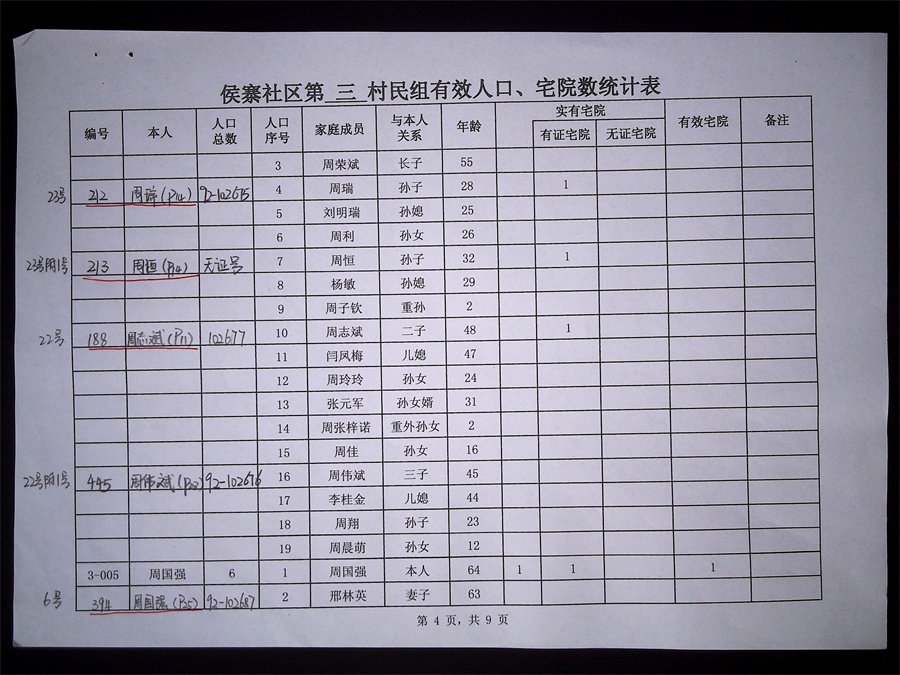 侯寨社区第 三 村民组有效人口、宅院数统计表
编号 本人 人口总数 人口序号 家庭成员 与本人关系 年龄 实有宅院 有证宅院 无证宅院 有效宅院 备注
3 周荣斌 长子 55
23号 212 周瑞(P14) 92-102675 4 周瑞 孙子 28 1
5 刘明瑞 孙媳 25
6 周利 孙女 26
23号附1号 213 周恒(P14) 无证号 7 周恒 孙子 32 1
8 杨敏 孙媳 29
9 周子钦 重孙 2
22号 188 周志斌(P11) 102677 10 周志斌 二子 48 1
11 闫凤梅 儿媳 47
12 周玲玲 孙女 24
13 张元军 孙女婿 31
14 周张梓诺 重外孙女 2
15 周佳 孙女 16
22号附1号 445 周伟斌(P32) 92-102676 16 周伟斌 三子 45
17 李桂金 儿媳 44
18 周翔 孙子 23
19 周晨萌 孙女 12
3-005 周国强 6 1 周国强 本人 64 1 1 1
6号 394 周国强(P25) 92-102687 2 邢林英 妻子 63
第 4 页，共 9 页